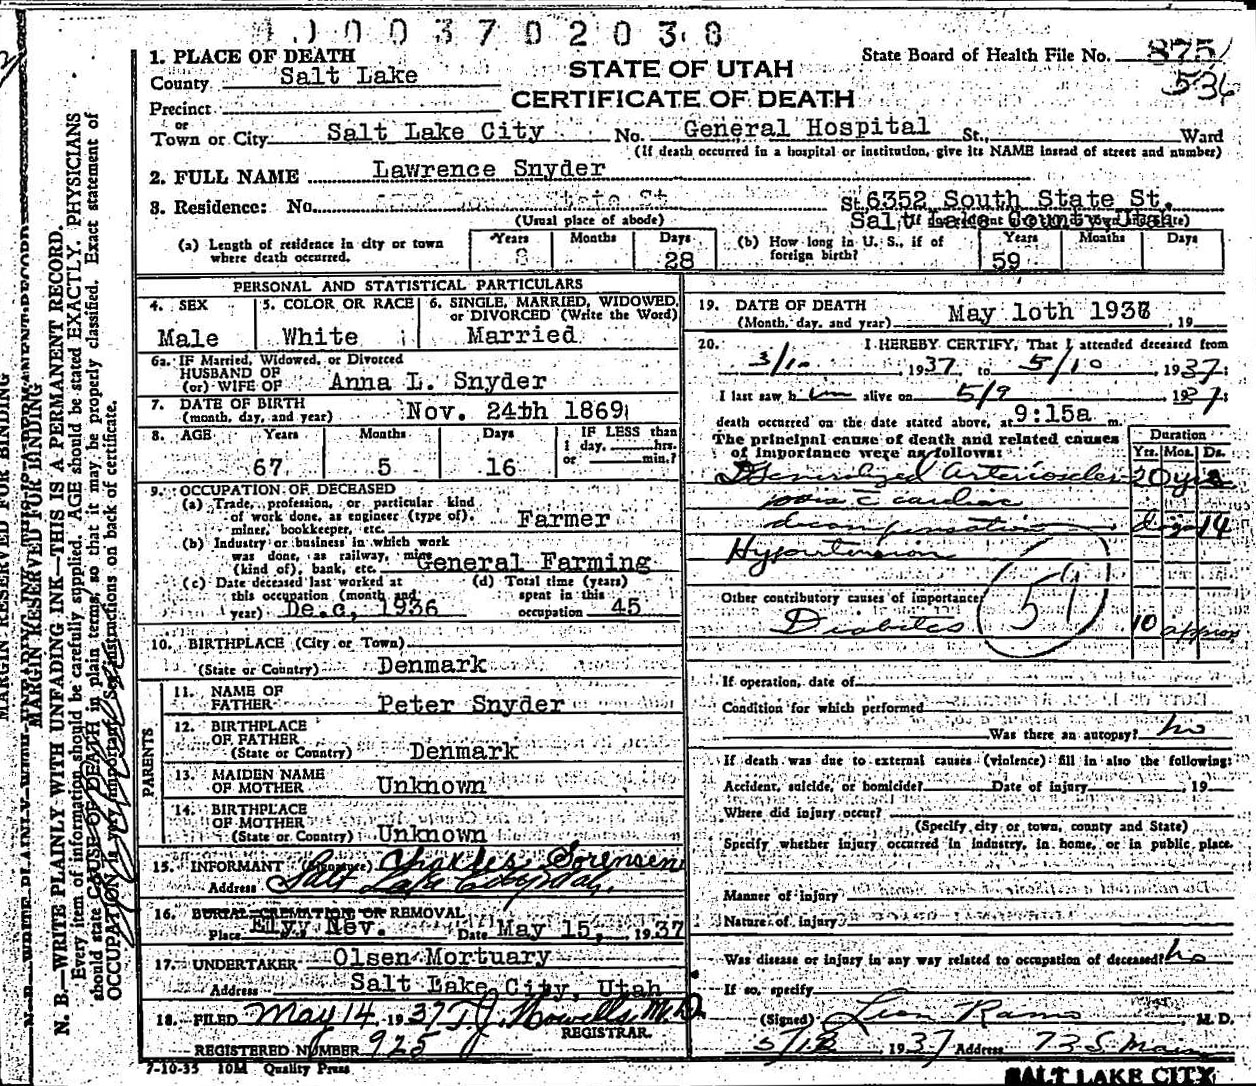 0 0 3 7 0 2 0 3 8
1. PLACE OF DEATH
County Salt Lake
STATE OF UTAH
CERTIFICATE OF DEATH
State Board of Health File No. 875
536
Precinct
or
Town or City Salt Lake City No. General Hospital St., Ward
(If death occurred in a hospital or institution, give its NAME instead of street and number)
2. FULL NAME Lawrence Snyder
3. Residence: No. State St St. 6352 South State St.
(Usual place of abode) Salt Lake County, Utah
(a) Length of residence in city or town where death occurred. Years 8 Months Days 28
(b) How long in U. S., if of foreign birth? Years 59 Months Days
PERSONAL AND STATISTICAL PARTICULARS
4. SEX Male
5. COLOR OR RACE White
6. SINGLE, MARRIED, WIDOWED, or DIVORCED (Write the Word) Married
6a. IF Married, Widowed, or Divorced
HUSBAND OF
(or) WIFE OF Anna L. Snyder
7. DATE OF BIRTH
(month, day, and year) Nov. 24th 1869
8. AGE Years 67 Months 5 Days 16 IF LESS than 1 day, hrs. or min.?
9. OCCUPATION OF DECEASED
(a) Trade, profession, or particular kind
of work done, as engineer (type of),
miner, bookkeeper, etc. Farmer
(b) Industry or business in which work
was done, as railway, mine
(kind of), bank, etc. General Farming
(c) Date deceased last worked at
this occupation (month and
year) Dec, 1936
(d) Total time (years)
spent in this
occupation 45
10. BIRTHPLACE (City or Town)
(State or Country) Denmark
PARENTS
11. NAME OF
FATHER Peter Snyder
12. BIRTHPLACE
OF FATHER
(State or Country) Denmark
13. MAIDEN NAME
OF MOTHER Unknown
14. BIRTHPLACE
OF MOTHER
(State or Country) Unknown
15. INFORMANT (Signature) Charles Sorensen
Address Salt Lake City
16. BURIAL CREMATION OR REMOVAL
Place Ely, Nev. Date May 15, 1937
17. UNDERTAKER Olsen Mortuary
Address Salt Lake City, Utah
18. FILED May 14, 1937 T. J. Howells M.D.
REGISTRAR.
REGISTERED NUMBER 925
7-10-35 10M Quality Press
19. DATE OF DEATH
(Month, day, and year) May 10th 1937, 19
20. I HEREBY CERTIFY, That I attended deceased from
3/10, 1937, to 5/10, 1937;
I last saw him alive on 5/9 1937;
death occurred on the date stated above, at 9:15a m.
The principal cause of death and related causes
of importance were as follows:
Duration
Yrs. Mos. Ds.
Generalized Arterioscler- 20 yrs
osis c cardiac
decompensation 14
Hypertension
51
Other contributory causes of importance:
Diabetes 10 approx
If operation, date of
Condition for which performed
Was there an autopsy? no
If death was due to external causes (violence) fill in also the following:
Accident, suicide, or homicide? Date of injury 19
Where did injury occur?
(Specify city or town, county and State)
Specify whether injury occurred in industry, in home, or in public place.
Manner of injury
Nature of injury
Was disease or injury in any way related to occupation of deceased? no
If so, specify
(Signed) Leon Ramo M. D.
5/12, 1937 Address 73 S. Main
SALT LAKE CITY
MARGIN RESERVED FOR BINDING
MARGIN RESERVED FOR BINDING
N. B.—WRITE PLAINLY WITH UNFADING INK—THIS IS A PERMANENT RECORD.
Every item of information should be carefully supplied. AGE should be stated EXACTLY. PHYSICIANS
should state CAUSE OF DEATH in plain terms, so that it may be properly classified. Exact statement of
OCCUPATION is very important. See instructions on back of certificate.